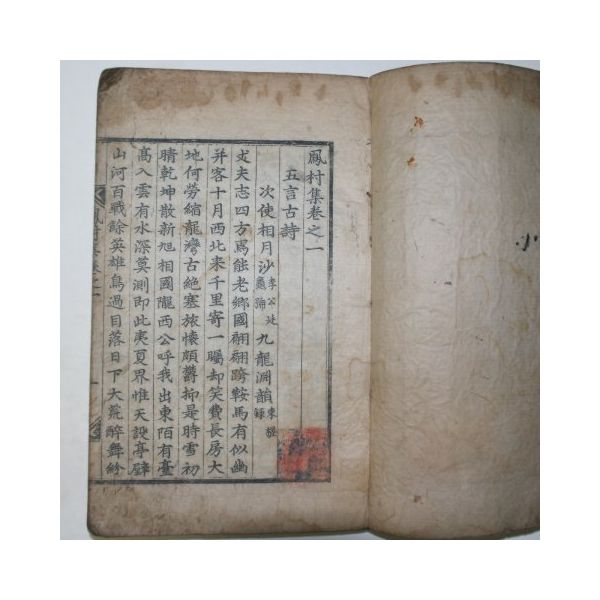 鳳村集卷之一
五言古詩
次使相月沙李公廷九龍淵韻東槎錄
丈夫志四方焉能老鄉國翩翩跨鞍馬有似幽
并客十月西北来千里寄一矚却笑費長房大
地何勞縮龍灣古絶塞旅懷頗鬱抑是時雪初
晴乾坤散新旭相國隴西公呼我出東陌有臺
高入雲有水深莫測即此夷夏界惟天設亭壁
山河百戰餘英雄鳥過目落日下大荒醉舞紛
鳳村集卷之一